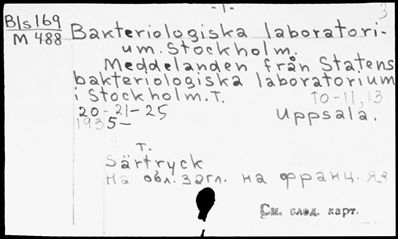 -1-
3
B/s169
M 488
Bakteriologiska laboratori-
um. Stockholm.
Meddelanden från Statens
bakteriologiska laboratorium
i Stockholm. T.
10-11, 13
20-21-25
Uppsala.
1935-
T.
Särtryck
На обл. загл. на франц. яз
См. след. карт.